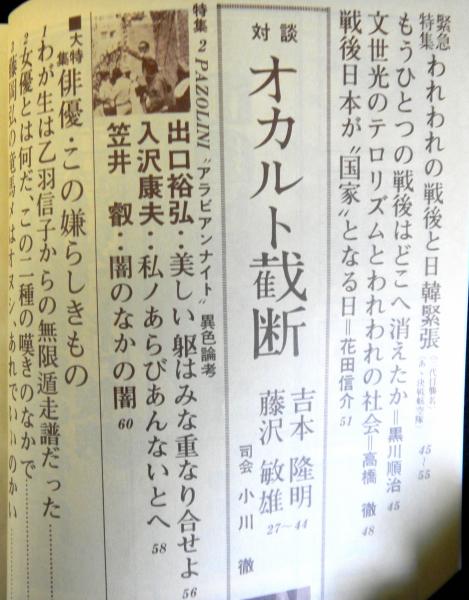 緊急特集 われわれの戦後と日韓緊張 45〜55
もうひとつの戦後はどこへ消えたか＝黒川順治 45
文世光のテロリズムとわれわれの社会＝高橋 徹 48
戦後日本が〝国家〟となる日＝花田信介 51
対談 オカルト截断
吉本隆明
藤沢敏雄
27〜44
司会 小川 徹
特集2 PAZOLINI〝アラビアンナイト〟異色論考
出口裕弘‥美しい躯はみな重なり合せよ 56
入沢康夫‥私ノあらびあんないとへ 58
笠井 叡‥闇のなかの闇 60
■大特集 俳優・この嫌らしきもの
1 わが生は乙羽信子からの無限遁走譜だった……
2 女優とは何だ、この二種の嘆きのなかで……